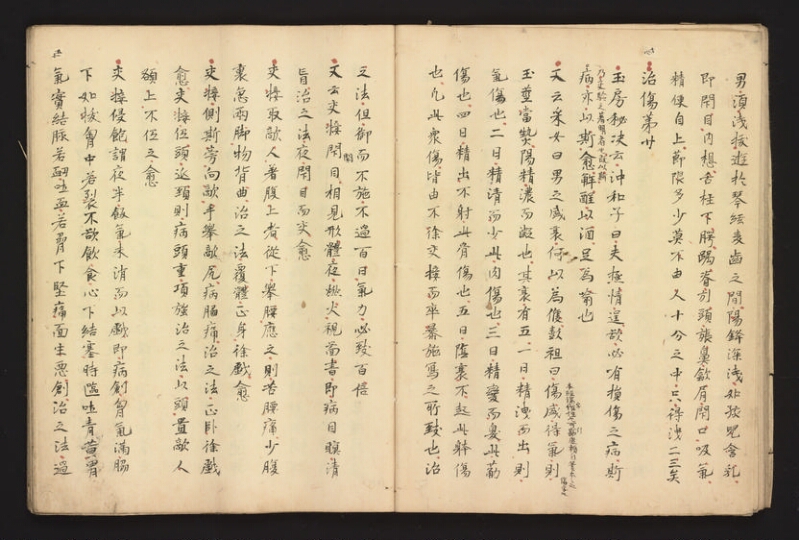 男須淺拔遊於琴絃麥齒之間陽鋒深淺如孩兒含乳
即閉目內想舌柱下腭跼脊引頭張鼻歙肩閉口吸氣
精便自上節限多少莫不由人十分之中只得洩二三矣
治傷第廿
玉房秘決云沖和子曰夫極情逞欲必有損傷之病斯
乃交驗之著明者也既以斯
病亦以斯愈解酲以酒足為喻也
又云采女曰男之盛衰何以為候彭祖曰傷盛得氣則
玉莖當熱陽精濃而凝也其衰有五一曰精洩而出則
氣傷也二曰精清而少此肉傷也三曰精變而臭此筋
傷也四曰精出不射此骨傷也五曰陰衰不起此躰傷
也凡此衆傷皆由不徐交接而卒暴施寫之所致也治
之法但御而不施不過百日氣力必致百倍
又云交接開目相見形體夜燃火視啚書即病目瞑清
盲治之法夜閉目而交愈
交接取敵人著腹上者從下舉腰應之則苦腰痛少腹
裏急兩脚物背曲治之法覆體正身徐戲愈
交接側斯旁向敵手舉敵尻病脇痛治之法正臥徐戲
愈交接伍頭延頸則病頭重項強治之法以頭置敵人
額上不伍之愈
交接侵飽謂夜半飯氣未消而以戲即病創胷氣滿脇
下如拔胷中若裂不欲飲食心下結塞時嘔吐青黃胃
氣實結脉若衂吐血若脅下堅痛面生惡創治之法過